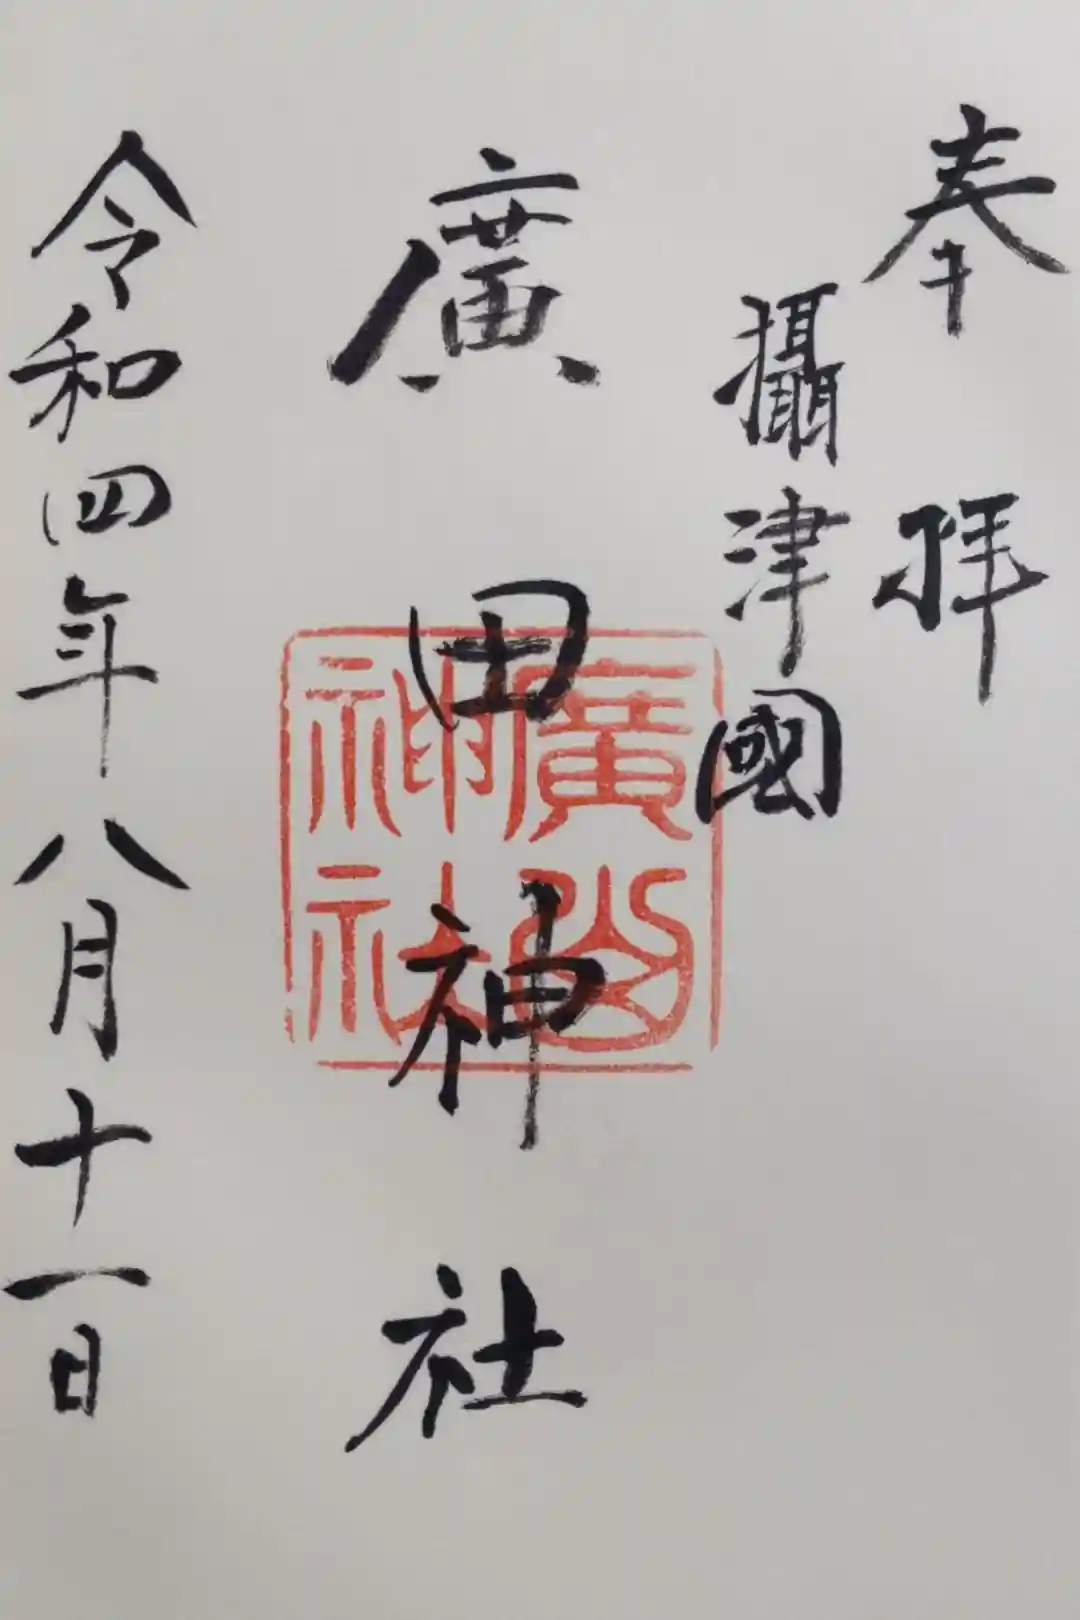 奉拝
攝津國
廣田神社
令和四年八月十一日